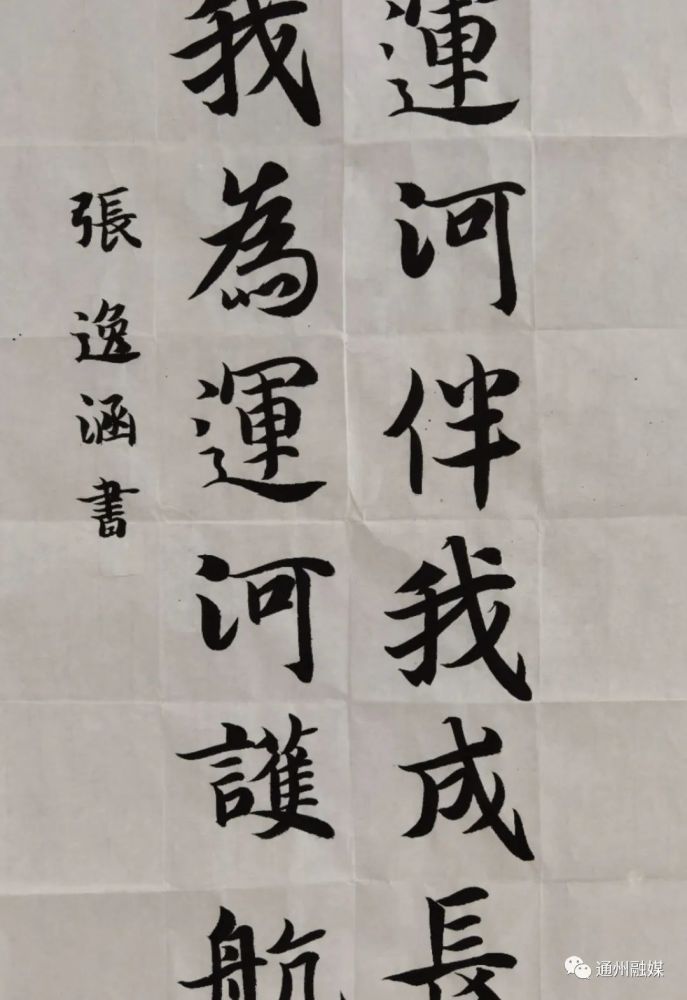 運河伴我成長
我為運河護航
張逸涵書
通州融媒